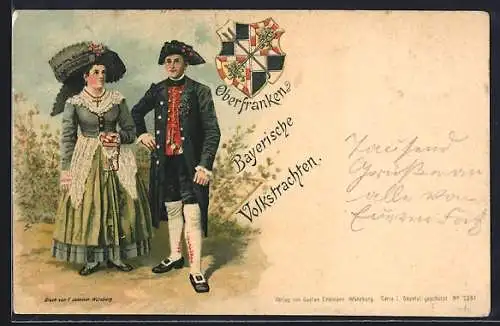 Oberfranken.
Bayerische
Volkstrachten.
Tausend
Grüße an
alle von
Eurem
Druck von F. Würzburg
Verlag von Gustav Würzburg. Serie I. Gesetzl. geschützt Nº